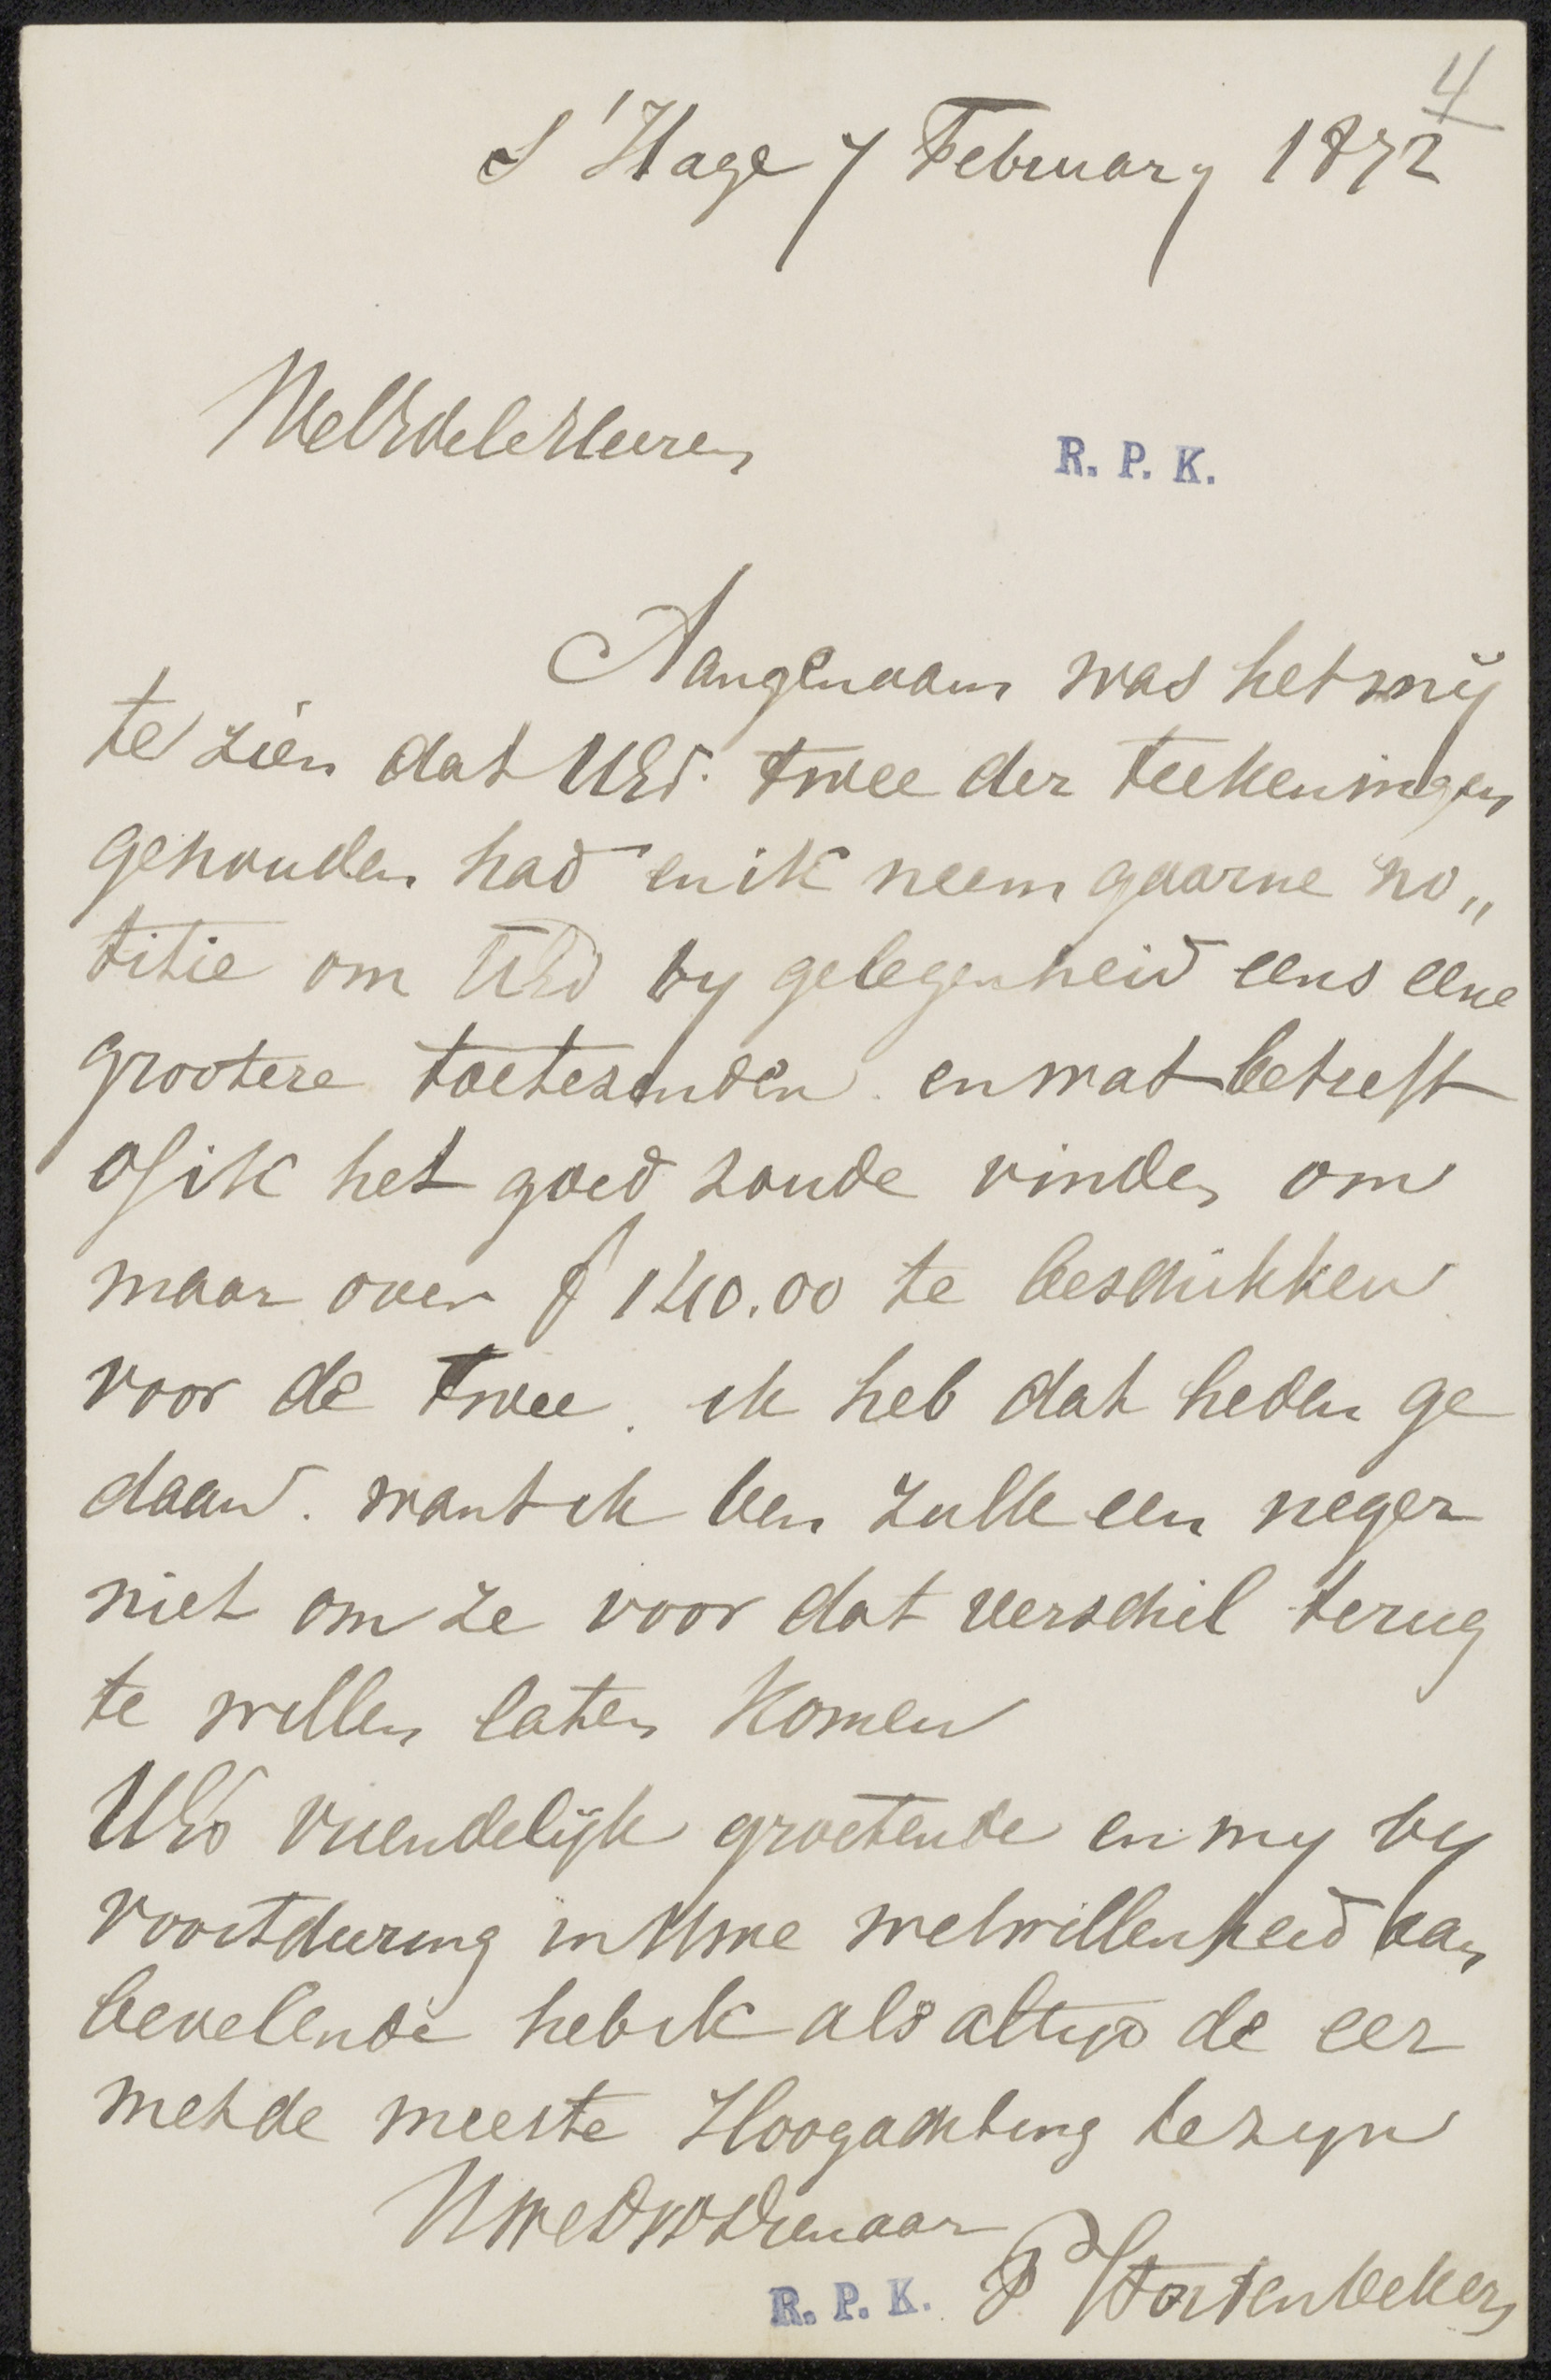 4
S'Hage 7 February 1872
WelEdele Heeren
R. P. K.
Aangenaam was het mij
te zien dat UEd. twee der teekeningen
gehouden had en ik neem gaarne no„
titie om UEd by gelegenheid eens eene
grootere toetezenden en wat betreft
of ik het goed zoude vinden om
maar over ƒ 140.00 te beschikken
voor de twee. ik heb dat heden ge
daan. want ik ben zulk een neger
niet om ze voor dat verschil terug
te willen laten komen
UEd vriendelijk groetende en my by
voortduring in Uwe welwillenheid aan
bevelende heb ik als altyd de eer
met de meeste Hoogachting te zyn
UwEdwDienaar
R. P. K. P Stortenbeker